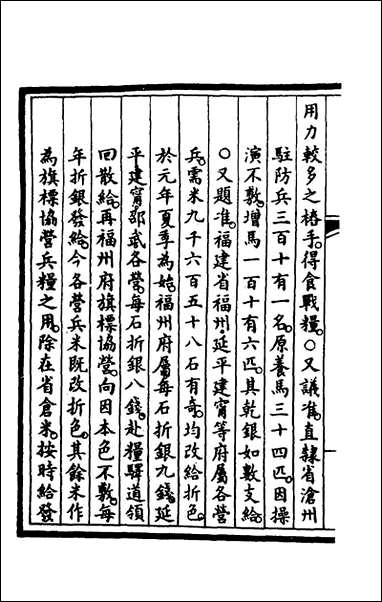 用力較多之樁手。得食戰糧。○又議准。直隸省滄州
駐防兵三百十有一名。原養馬三十四匹。因操
演不敷。增馬一百十有六匹。其乾銀如數支給。
○又題准。福建省福州。延平建甯等府屬各營
兵。需米九千六百五十八石有奇。均改給折色。
於元年夏季為始。福州府屬每石折銀九錢。延
平建甯邵武各營。每石折銀八錢。赴糧驛道領
回散給。再福州府旗標協營。向因本色不敷。每
年折銀發給。今各營兵米既改折色。其餘米作
為旗標協營兵糧之用。除在省倉米。按時給發